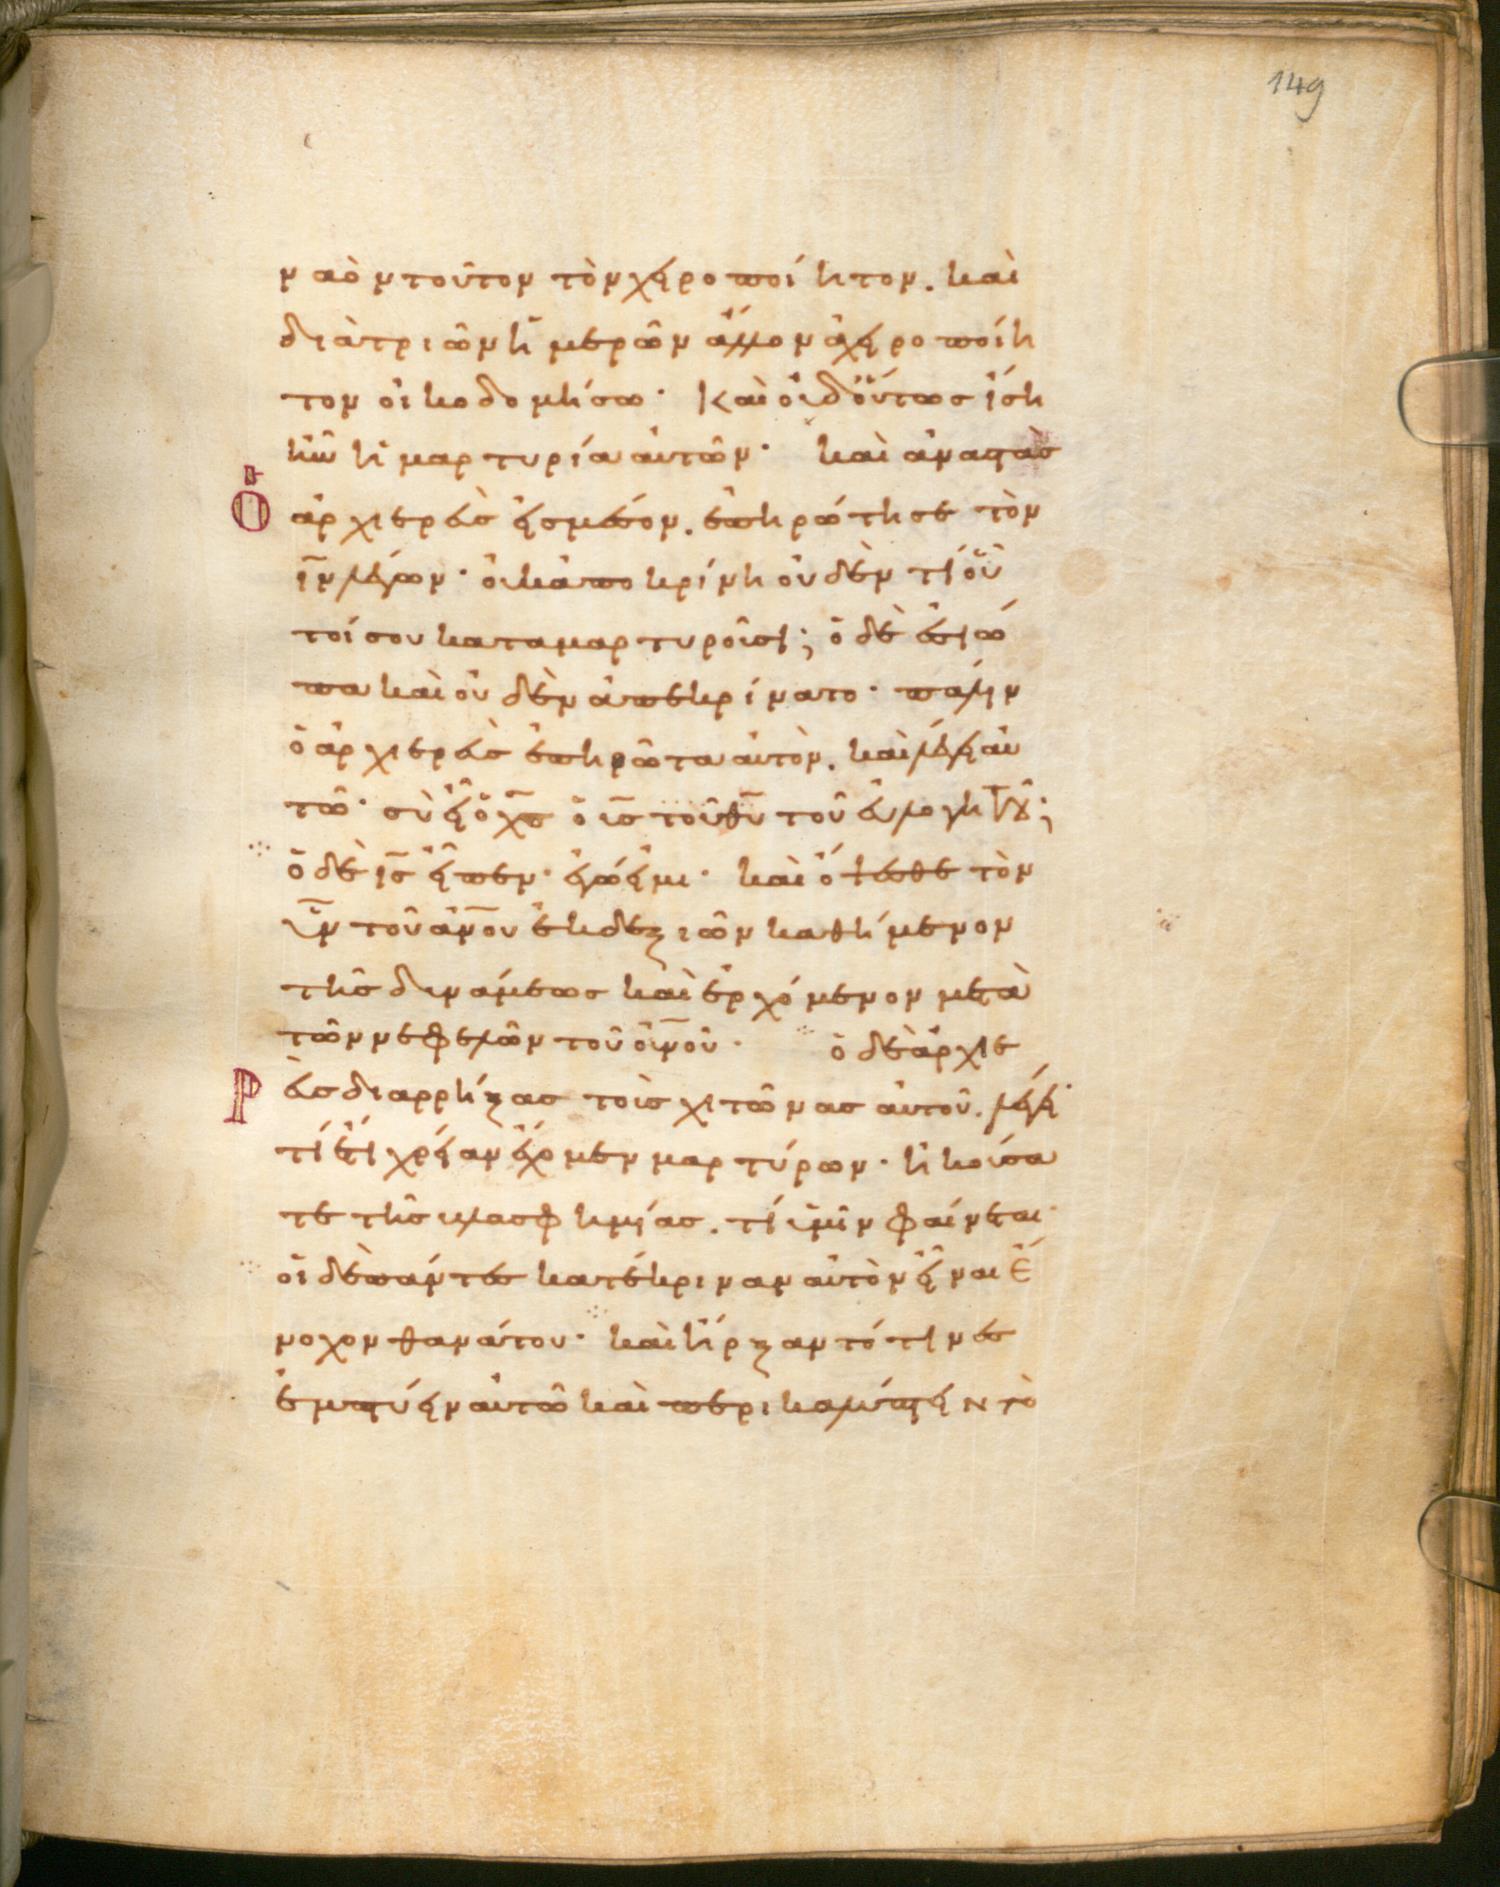 149
ναὸν τοῦτον τὸν χειροποίητον. καὶ
διὰ τριῶν ἡμερῶν ἄλλον ἀχειροποίη
τον οἰκοδομήσω· Και οὐδ' οὕτως ἴση
ἦν ἡ μαρτυρία αὐτῶν· καὶ ἀναστὰς
Ὁ ἀρχιερεὺς εἰς μέσον. ἐπηρώτησε τὸν
ιν λέγων· οὐκ ἀποκρίνη οὐδὲν τί οὗ
τοί σου καταμαρτυροῦσι; ὁ δὲ ἐσιώ
πα καὶ οὐδὲν ἀπεκρίνατο· πάλιν
ὁ ἀρχιερεὺς ἐπηρώτα αὐτὸν. καὶ λέγει αὐ
τῶ· σὺ εἶ ὁ χς ὁ υς τοῦ θυ τοῦ εὐλογητοῦ;
ὁ δὲ ις εἶπεν· ἐγώ εἰμι· καὶ ὄψεσθε τὸν
υν τοῦ ανου ἐκ δεξιῶν καθήμενον
τῆς δυνάμεως καὶ ἐρχόμενον μετὰ
τῶν νεφελῶν τοῦ ουνου· ὁ δὲ ἀρχιε
Ρ εὺς διαρρήξας τοὺς χιτῶνας αὐτοῦ. λέγει·
τί ἔτι χρείαν ἔχομεν μαρτύρων· ἠκούσα
τε τῆς βλασφημίας. τί ὑμῖν φαίνεται·
οἱ δὲ πάντες κατέκριναν αὐτὸν εἶναι ἔ
νοχον θανάτου· καὶ ἤρξαντό τινες
ἐμπτύειν αὐτῶ καὶ περικαλύπτειν τὸ